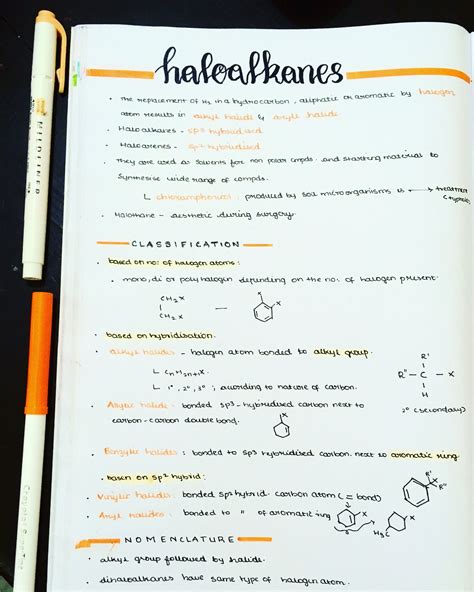 haloalkanes
• The replacement of H₂ in a hydrocarbon, aliphatic or aromatic by halogen
atom results in alkyl halide & aryl halide
• Haloalkanes - sp3 hybridised
• Haloarenes - sp² hybridised
• They are used as solvents for non polar cmpds. and starting material to
synthesise wide range of compds.
↳ chloramphenicol : produced by soil microorganisms is → treatment
(typhoid)
• Halothane - aesthetic during surgery.
CLASSIFICATION
• based on no: of halogen atoms:
• mono, di or polyhalogen depending on the no: of halogen present.
CH₂X
CH₂X
—
X
X
• based on hybridisation.
• Alkyl halides - halogen atom bonded to alkyl group.
↳ CnH2n+1X.
↳ 1°, 2°, 3° ; according to nature of carbon.
R'
R" - C - X
H
2° (secondary)
• Allylic halide : bonded sp3-hybridised carbon next to
carbon-carbon double bond.
X
• Benzylic halides : bonded to sp3 hybridised carbon next to aromatic ring
• based on sp² hybrid:
R'
X
R"
• Vinylic halides : bonded sp² hybrid carbon atom (= bond)
• Aryl halides : bonded to " of aromatic ring
X
X
H₃C
NOMENCLATURE
• alkyl group followed by halide.
• dihaloalkanes have same type of halogen atom.
MILDLINER